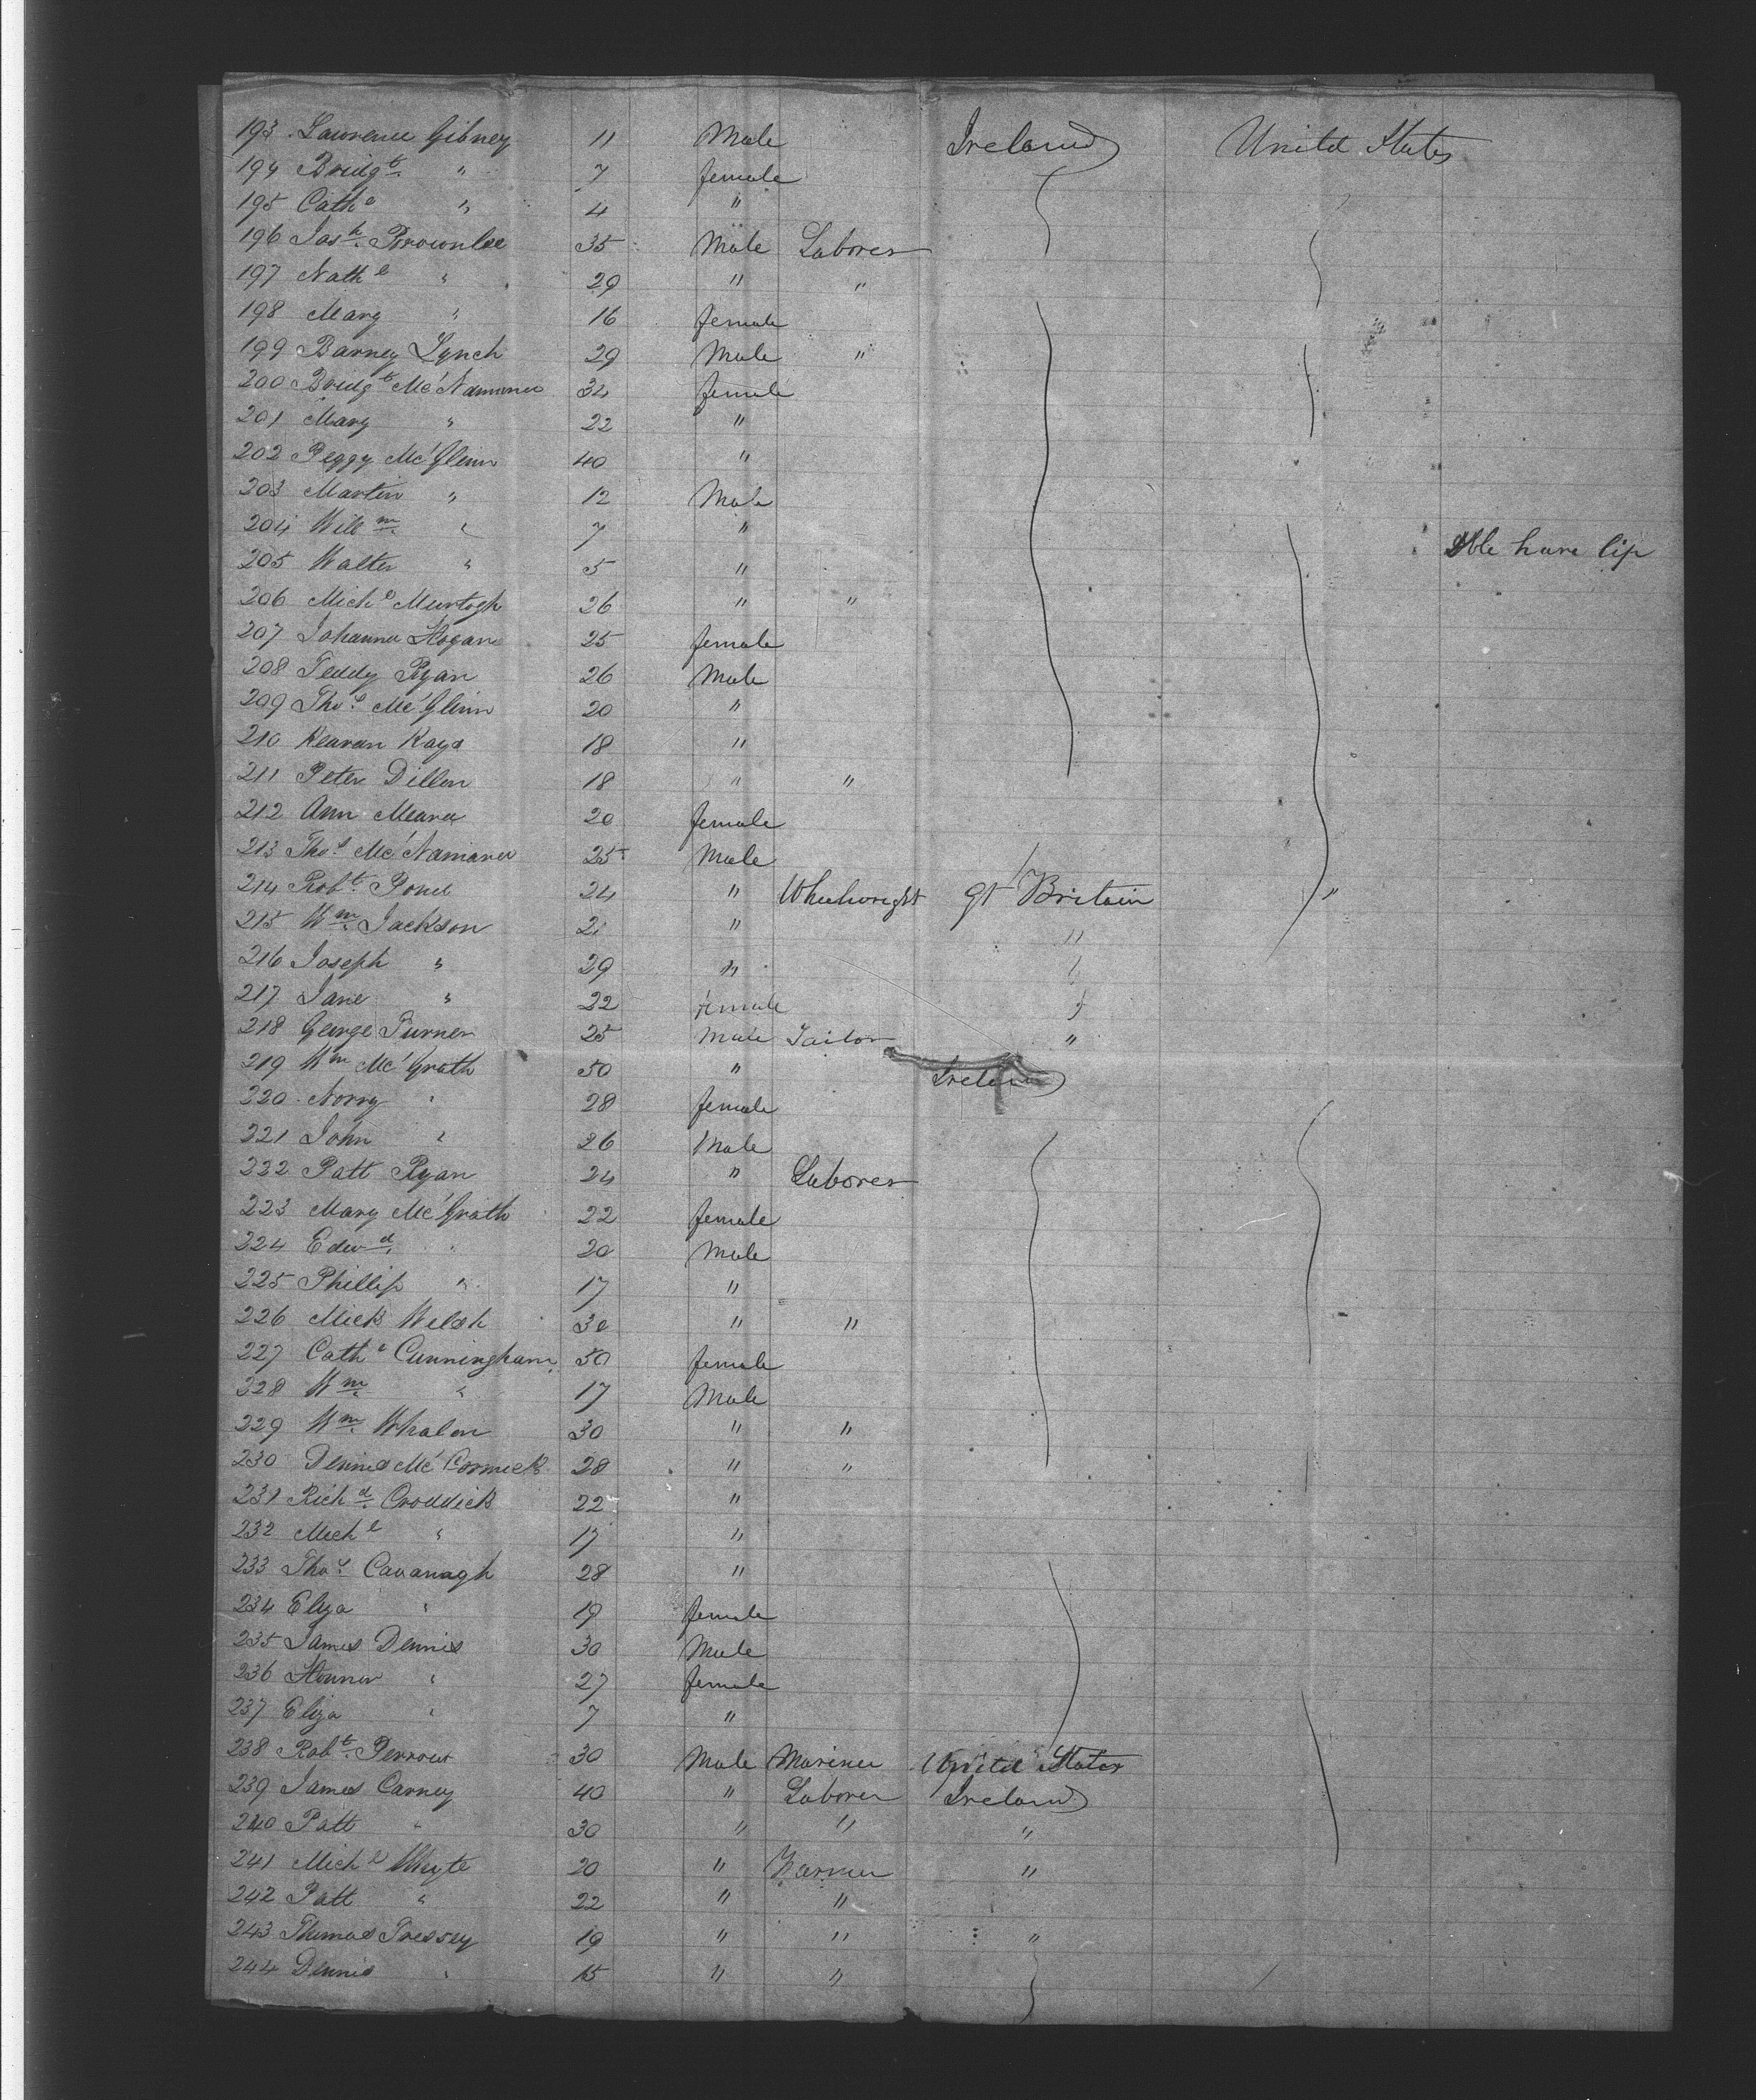 193 Lawrence Gibney 11 Male Ireland United States
194 Bridgt. " 7 female
195 Cathe " 4 "
196 Josh. Brownlee 35 Male Laborer
197 Nathl " 29 " "
198 Mary " 16 female
199 Barney Lynch 29 Male "
200 Bridgt McNamara 34 female
201 Mary " 22 "
202 Peggy McGlinn 40 "
203 Martin " 12 Male
204 Willm. " 7 " Dble hare lip
205 Walter " 5 "
206 Michl Murtogh 26 " "
207 Johanna Hogan 25 female
208 Teddy Ryan 26 Male
209 Thos. McGlinn 20 "
210 Keavan Kays 18 "
211 Peter Dillon 18 " "
212 Ann Meara 20 female
213 Thos. McNamara 25 Male
214 Robt. Pond 24 " Wheelwright Gt Britain "
215 Wm. Jackson 21 " "
216 Joseph " 29 " "
217 Jane " 22 female "
218 George Turner 25 Male Tailor "
219 Wm McGrath 50 " Ireland
220 Norry " 28 female
221 John " 26 Male
222 Patt Ryan 24 " Laborer
223 Mary McGrath 22 female
224 Edwd. " 20 Male
225 Phillip " 17 "
226 Mick Welsh 30 " "
227 Cathe Cunningham 50 female
228 Wm. " 17 Male
229 Wm. Whalen 30 " "
230 Dennis McCormick 28 " "
231 Richd. Croddick 22 "
232 Michl " 17 "
233 Thos. Cavanagh 28 "
234 Eliza " 19 female
235 James Dennis 30 Male
236 Honnor " 27 female
237 Eliza " 7 "
238 Robt. Perrow 30 Male Mariner United States
239 James Carney 40 " Laborer Ireland
240 Patt " 30 " " "
241 Michl Whyte 20 " Farmer "
242 Patt " 22 " "
243 Thomas Tressey 19 " " "
244 Dennis " 15 " "